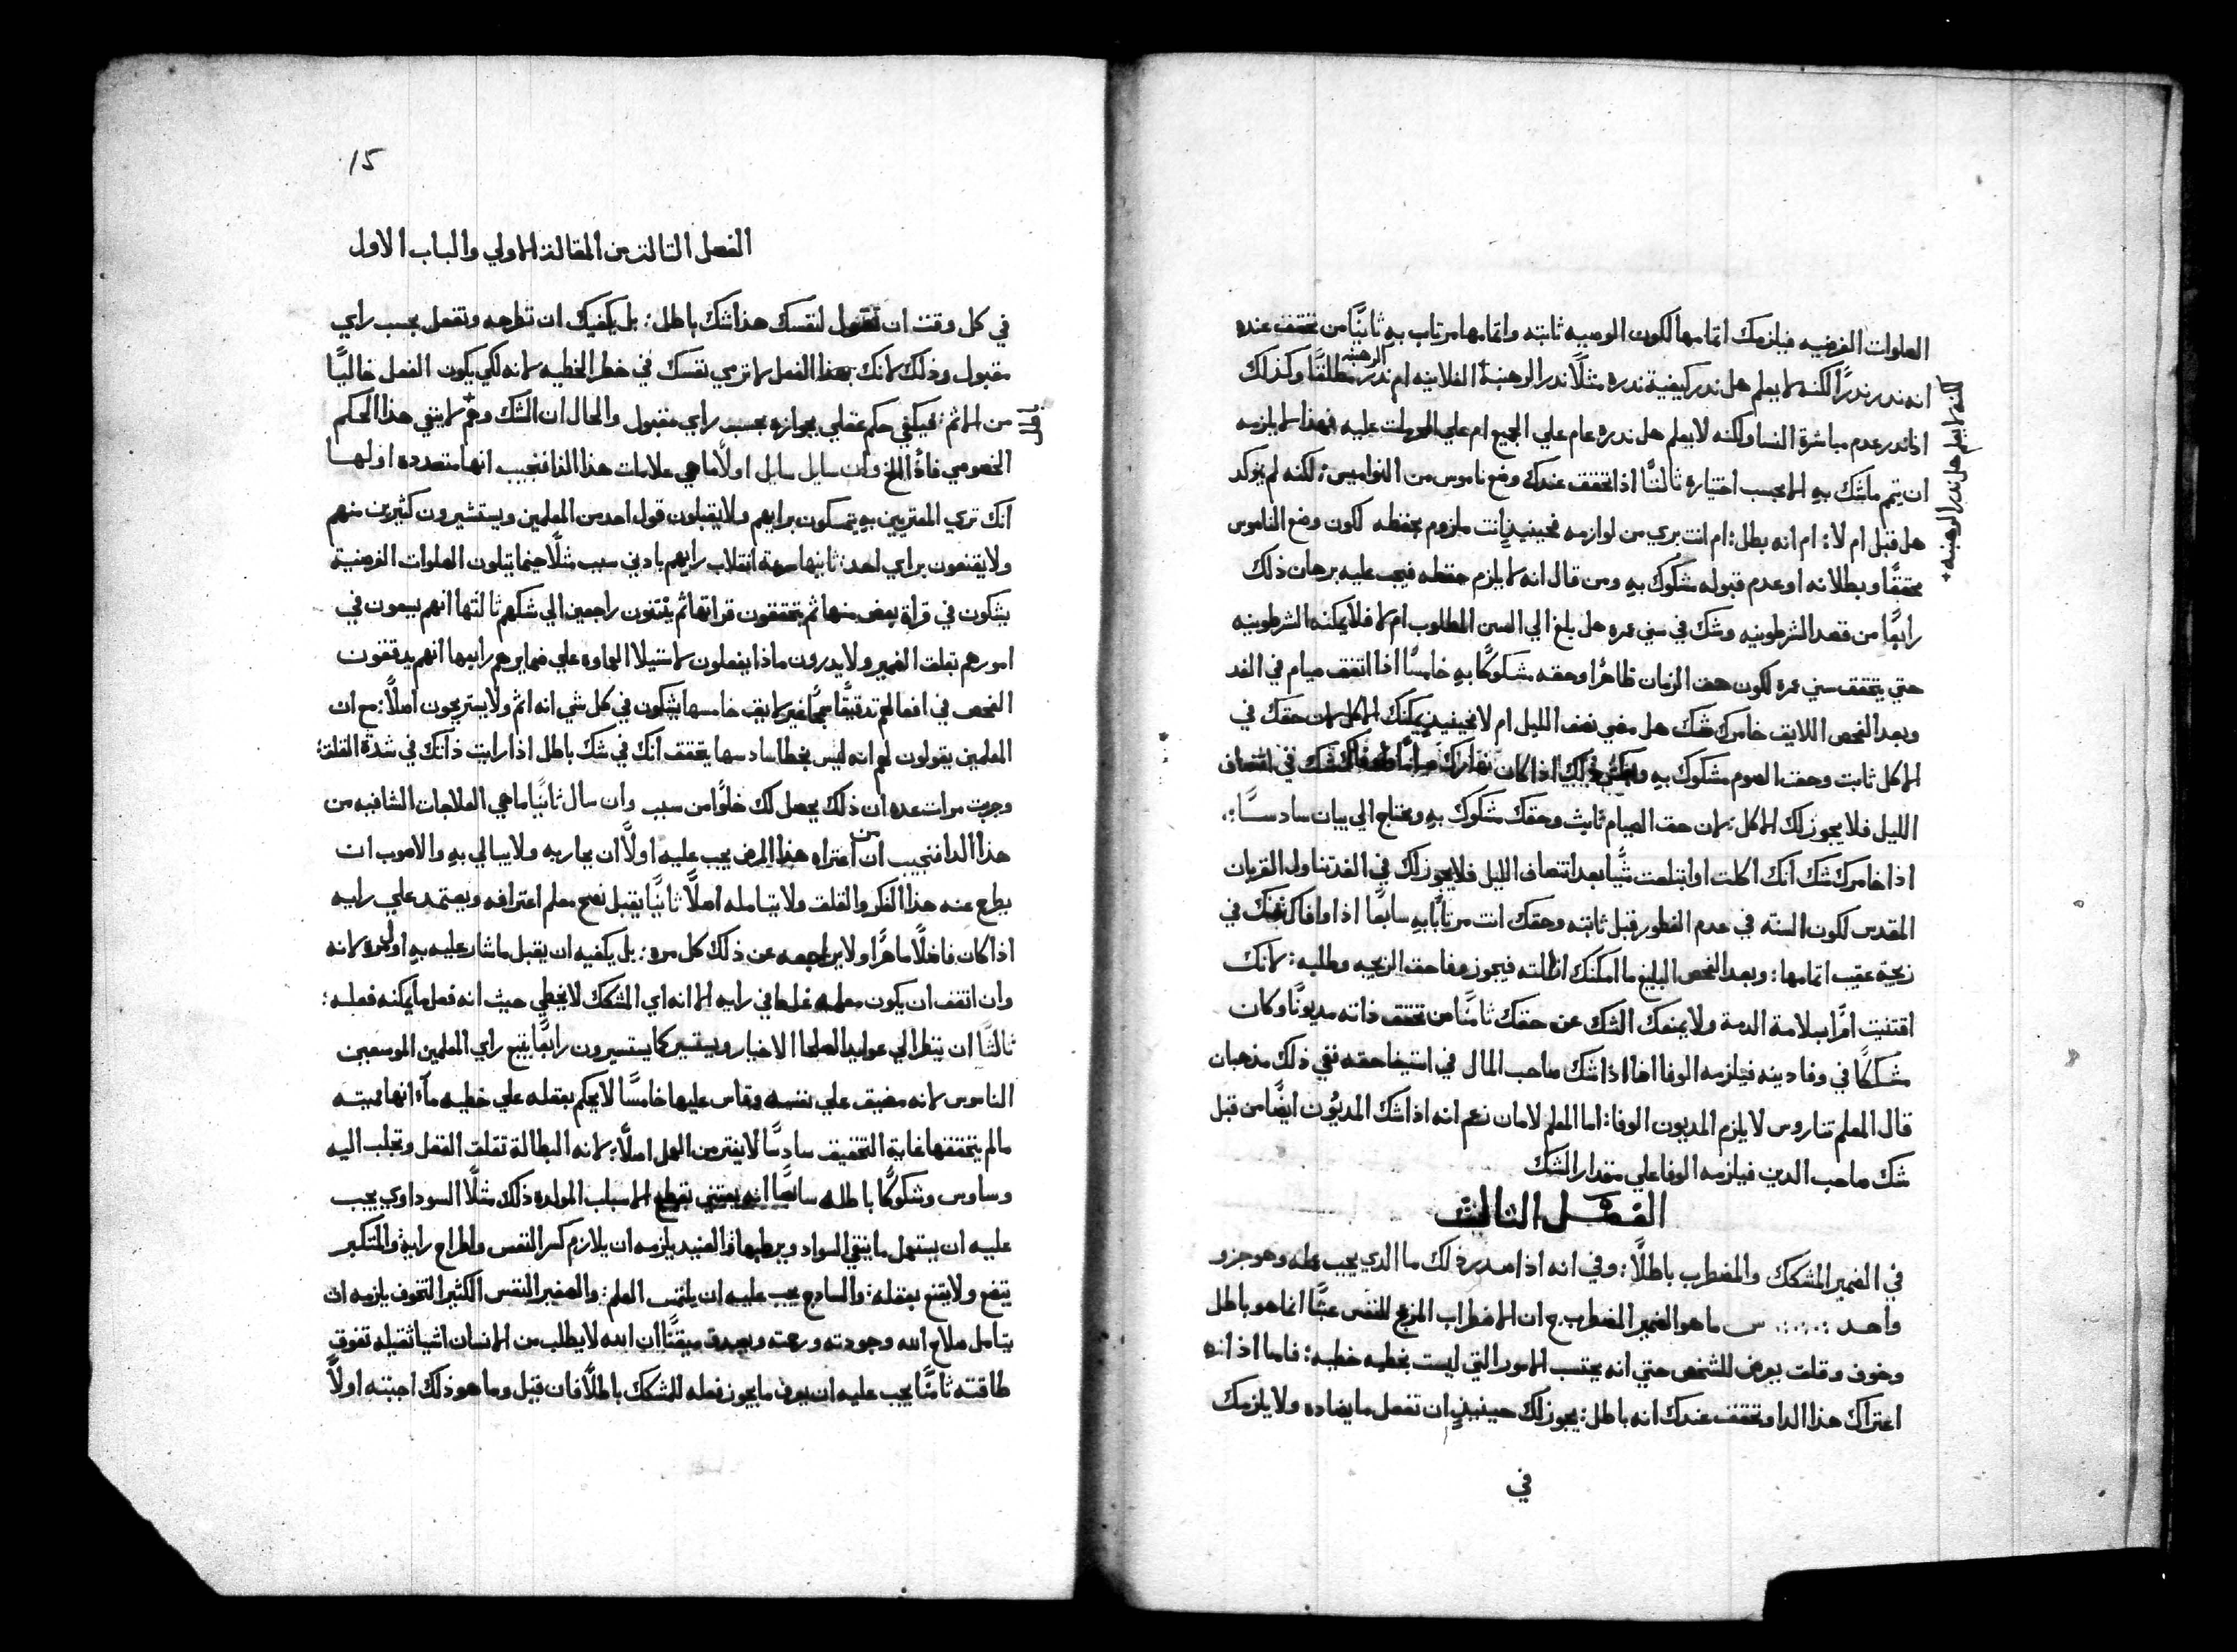 الصلوات الفرضيه فيلزمك اتمامها لكون الوصيه ثابته واتمامها مرتاب به ثانيًا من تحقق عنده
انه ندر ندرًا لكنه لا يعلم هل ندر كيفية ندره مثلًا ندر الرهبنة الفلانيه ام ندر الرهبنه مطلقًا وكذلك
لكنه لا يعلم هل ندر الرهبنه
اذا ندر عدم مباشرة النسا ولكنه لا يعلم هل ندره عام علي الجميع ام علي المحرمات عليه فهذا لا يلزمه
ان يتم ما شك به الا بحسب اختياره ثالثًا اذا تحقق عندك وضع ناموس من النواميس: لكنه لم يؤكد
هل قبل ام لا: ام انه بطل: ام انت بري من لوازمه فحينيذٍ انت ملزوم بحفظه لكون وضع الناموس
محققًا وبطلانه او عدم قبوله مشكوك به ومن قال انه لا يلزم حفظه فيجب عليه برهان ذلك
رابعًا من قصد الشرطونيه وشك في سني عمره هل بلغ الي السن المطلوب ام لا فلا يمكنه الشرطونيه
حتي يتحقق سني عمره لكون حق الزمان ظاهرًا وحقه مشكوكًا به خامسًا اذا اتفق صيام في الغد
وبعد الفحص اللايق خامرك شك هل مضي نصف الليل ام لا فحينيذٍ يمكنك الاكل لان حقك في
الاكل ثابت وحق الصوم مشكوك به اذا كان نهارك في انتصاف
الليل فلا يجوز لك الاكل: لان حق الصيام ثابث وحقك مشكوك به ويحتاج الي بيان سادسًا:.
اذا خامرك شك انك اكلت او ابتلعت شيًا بعد انتصاف الليل فلا يجوز لك في الغد تناول القربان
المقدس لكون السنه في عدم الفطور قبل ثابته وحقك انت مرتابًا به سابعًا اذا وافاك شك في
زيجة عقيب اتمامها: وبعد الفحص البليغ ما امكنك ازالته فيجوز وفا حق الزيجه وطلبه: لانك
اقتنيت امرًا بسلامة الدمة ولا يمنعك الشك عن حقك ثامنًا من تحقق ذاته مديونًا وكان
مشككًا في وفا دينه فيلزمه الوفا اما اذا شك صاحب المال في استيفا حقه ففي ذلك مذهبان
قال المعلم تناروس لا يلزم المديون الوفا: اما المعلم لامان زعم انه اذا شك المديون ايضًا من قبل
شك صاحب الدين فيلزمه الوفا علي مقدار الشك
الفصل الثالث
في الضمير المشكك والمضطرب باطلًا: وفي انه اذا صدر ذلك ما الدي يجب عمله وهو جزو
واحد :.:.:. س ما هو الضمير المضطرب ج ان الاضطراب المزعج للنفس عبثًا انما هو باطل
وخوف وقلق يعرض للشخص حتي انه يجتنب الامور التي ليست بخطيه خطيه: فاما اذ انه
اعتراك هذا الدا وتحقق عندك انه باطل: يجوز لك حينيذٍ ان تفعل ما يضاده ولا يلزمك
في
15
الفصل الثالث من المقالة الاولي والباب الاول
في كل وقت ان تقول لنفسك هذا شك باطل: بل يكفيك ان تطرحه وتفعل بحسب راي
مقبول وذلك لانك بهذا الفعل لا ترمي نفسك في خطر الخطيه لانه لكي يكون الفعل خاليًا
من الاثم: فيكفي حكم عقلي بجوازه بحسب راي مقبول والحال ان الشك وهم لا ينفي هذا الحكم
الخصوصي فاذًا الخ وان سايل سايل اولًا ما هي علامات هذا الدا فنجيب انها متعدده اولها
انك تري المعتريين به يتمسكون برايهم ولا يقبلون قول احد من المعلمين ويستشيرون كثيرين منهم
ولا يقنعون براي احد: ثانيها سرعة انقلاب رايهم بادني سبب مثلًا حينما يتلون الصلوات الفرضية
يشكون في قراة بعض منها ثم يتحققون قراتها ثم ينثنون راجعين الي شكهم ثالثها انهم يسعون في
امورهم بقلق الضمير ولا يدرون ماذا يفعلون لاستيلا الغماوه علي ضمايرهم رابعها انهم يدققون
الفحص في افعالهم تدقيقًا سمجًا غير لايق خامسها يشكون في كل شي انه اثم ولا يستريحون اصلًا: مع ان
المعلمين يقولون لهم انه ليس بخطا سادسها يتحقق انك في شك باطل اذا رايت ذاتك في شدة القلق:
وجربت مرات عده ان ذلك يحصل لك خلوًا من سبب وان سال ثانيًا ما هي العلاجات الشافيه من
هذا الدا فنجيب ان من اعتراه هذا المرض يجب عليه اولًا ان يحاربه ولا يبالي به والاصوب ان
يطرح عنه هذا الفكر والقلق ولا يتامله اصلًا ثانيًا يقبل نصح معلم اعترافه ويعتمد علي رايه
اذا كان فاضلًا ماهرًا ولا يراجعه عن ذلك كل مره: بل يكفيه ان يقبل ما شار عليه به اول مره لانه
وان اتفق ان يكون معلمه غلط في رايه الا انه اي المشكك لا يخطي حيث انه فعل ما يمكنه فعله:
ثالثًا ان ينظر الي عوايد الصلحا الاخيار ويستسير كما يستسيرون رابعًا يتبع راي المعلمين الموسعين
الناموس لانه مضيق علي نفسه وقاس عليها خامسًا لا يحكم بعقله علي خطيه ما انها مميته
ما لم يتحققها غاية التحقيق سادسًا لا يفتر من العمل اصلًا: لانه البطالة تقلق العقل وتجلب اليه
وساوس وشكوكًا باطله سابعًا انه يعتني بقطع الاسباب المولده ذلك مثلًا السوداوي يجب
عليه ان يستعمل ما ينقي السواد ويرطبها والعنيد يلزمه ان يلازم كسر النفس واطراح رايه والمتكبر
يتضع ولا يقتنع بعقله: والسادج يجب عليه ان يلتمس العلم: والصغير النفس الكثير التخوف يلزمه ان
يتامل صلاح الله وجودته ورحمته ويصدق ميقنًا ان الله لا يطلب من الانسان اشيا ثقيله تفوق
طاقته ثامنًا يجب عليه ان يعرف ما يجوز فعله للمشكك باطلًا فان قيل وما هو ذلك اجبته اولًا